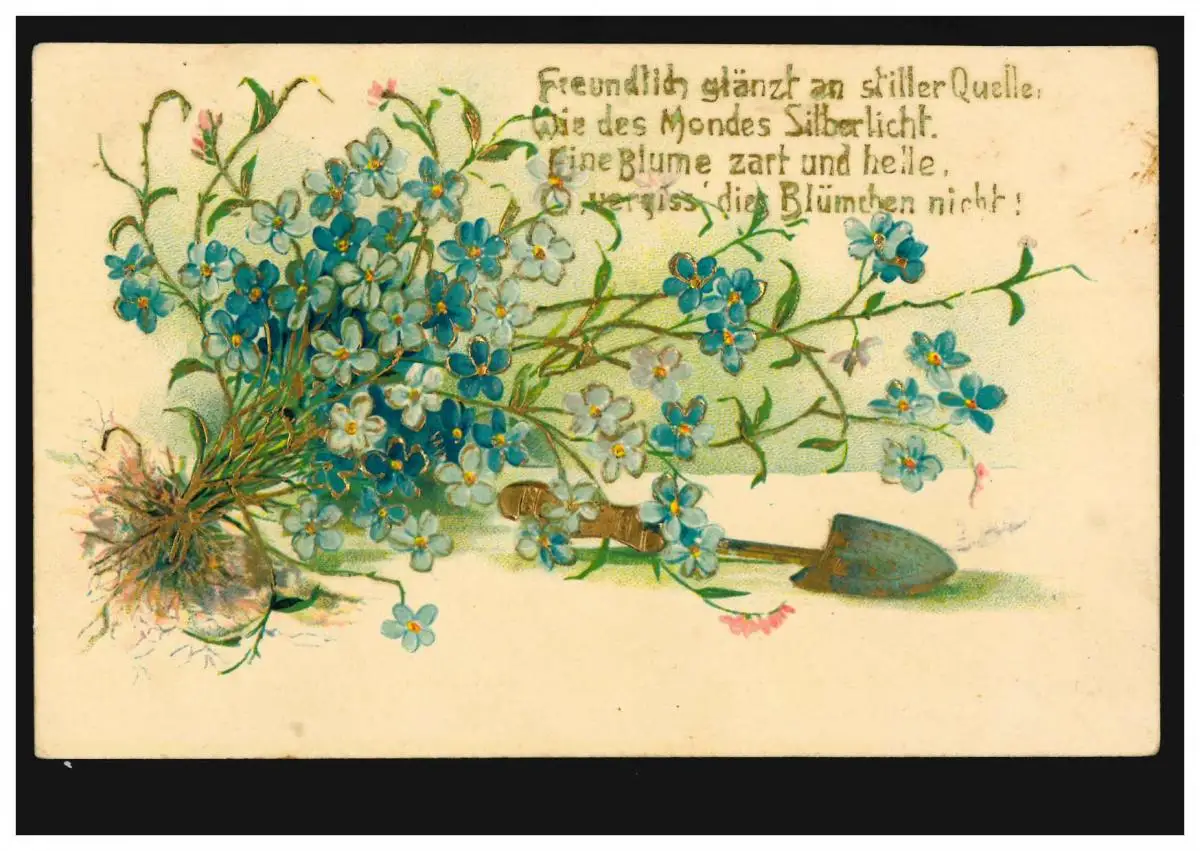 Freundlich glänzt an stiller Quelle,
Wie des Mondes Silberlicht.
Eine Blume zart und helle,
O, vergiss' dies Blümchen nicht!